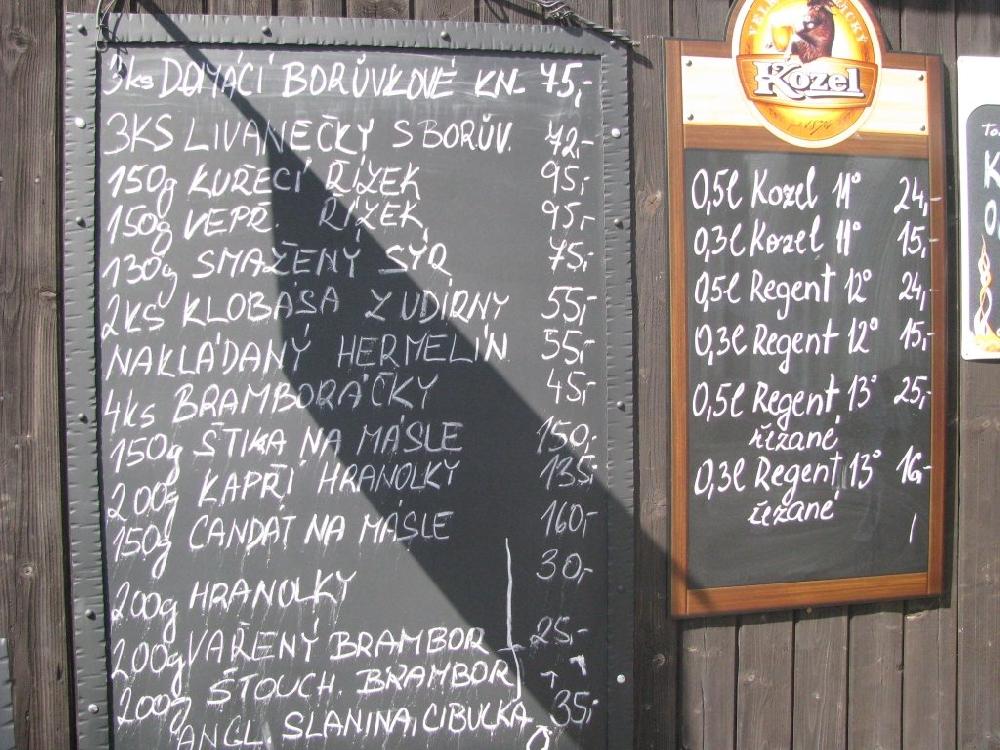 3ks DOMÁCÍ BORŮVKOVÉ KN. 75,-
3KS LIVANEČKY S BORŮV. 72,-
150g KUŘECÍ ŘÍZEK 95,-
150g VEPŘ. ŘÍZEK 95,-
130g SMAŽENÝ SÝR 75,-
2KS KLOBÁSA Z UDÍRNY 55,-
NAKLÁDANÝ HERMELÍN 55,-
4ks BRAMBORÁČKY 45,-
150g ŠTIKA NA MÁSLE 150,-
200g KAPŘÍ HRANOLKY 135,-
150g CANDÁT NA MÁSLE 160,-
200g HRANOLKY 30,-
200g VAŘENÝ BRAMBOR 25,-
200g ŠTOUCH. BRAMBOR
ANGL. SLANINA, CIBULKA 35,-
Kozel
0,5l Kozel 11° 24,-
0,3l Kozel 11° 15,-
0,5l Regent 12° 24,-
0,3l Regent 12° 15,-
0,5l Regent 13° 25,-
řezané
0,3l Regent 13° 16,-
řezané